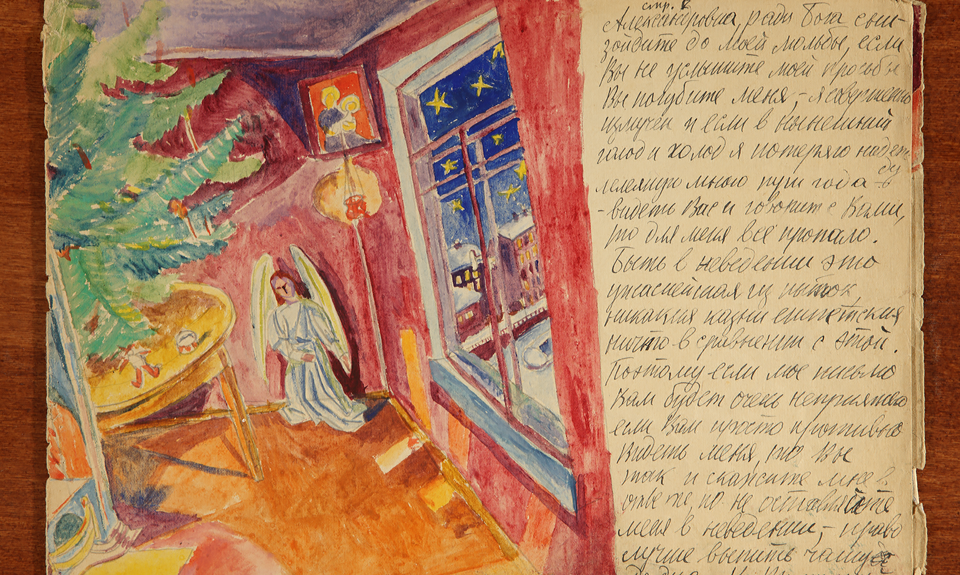 стр. 6
Александровна, ради Бога снизойдите до моей мольбы, если
Вы не услышите моей просьбы
Вы погубите меня, – я совершенно
измучен и если в нынешний
голод и холод я потеряю надежду
лелеемую мною пуши года –
– видеть Вас и говорить с Вами,
то для меня всё пропало.
Быть в неведении это
ужаснейшая из пыток
никакая казни египетская
ничто в сравнении с этой.
Поэтому если мое письмо
Вам будет очень неприятно
если Вам просто противно
видеть меня, то Вы
так и скажите мне в
ответе, но не оставляйте
меня в неведении, – право
лучше выпить чашу